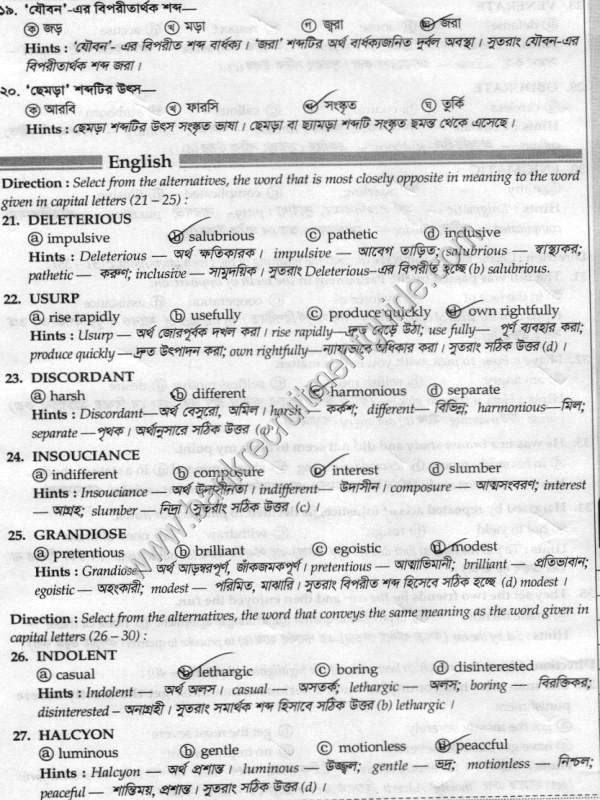 ১৯. 'যৌবন'-এর বিপরীতার্থক শব্দ—
ⓐ জড় ⓑ মড়া ⓒ জ্বরা ⓓ জরা
Hints : 'যৌবন'- এর বিপরীত শব্দ বার্ধক্য। 'জরা' শব্দটির অর্থ বার্ধক্যজনিত দুর্বল অবস্থা। সুতরাং যৌবন-এর
বিপরীতার্থক শব্দ জরা।
২০. 'ছেমড়া' শব্দটির উৎস—
ক আরবি খ ফারসি সংস্কৃত ঘ তুর্কি
Hints : ছেমড়া শব্দটির উৎস সংস্কৃত ভাষা। ছেমড়া বা ছ্যামড়া শব্দটি সংস্কৃত ছমন্ড থেকে এসেছে।
English
Direction : Select from the alternatives, the word that is most closely opposite in meaning to the word
given in capital letters (21 – 25) :
21. DELETERIOUS
ⓐ impulsive ⓑ salubrious ⓒ pathetic ⓓ inclusive
Hints : Deleterious — অর্থ ক্ষতিকারক। impulsive — আবেগ তাড়িত; salubrious — স্বাস্থ্যকর;
pathetic — করুণ; inclusive — সামুদয়িক। সুতরাং Deleterious–এর বিপরীত হচ্ছে (b) salubrious.
22. USURP
ⓐ rise rapidly ⓑ usefully ⓒ produce quickly ⓓ own rightfully
Hints : Usurp — অর্থ জোরপূর্বক দখল করা। rise rapidly—দ্রুত বেড়ে উঠা; use fully— পূর্ণ ব্যবহার করা;
produce quickly—দ্রুত উৎপাদন করা; own rightfully—ন্যায্যভাবে অধিকার করা। সুতরাং সঠিক উত্তর (d)।
23. DISCORDANT
ⓐ harsh ⓑ different ⓒ harmonious ⓓ separate
Hints : Discordant—অর্থ বেসুরো, অমিল। harsh— কর্কশ; different— বিভিন্ন; harmonious—মিল;
separate —পৃথক। অর্থানুসারে সঠিক উত্তর (c)।
24. INSOUCIANCE
ⓐ indifferent ⓑ composure ⓒ interest ⓓ slumber
Hints : Insouciance — অর্থ উদাসীনতা। indifferent— উদাসীন। composure — আত্মসংবরণ; interest
— আগ্রহ; slumber — নিদ্রা। সুতরাং সঠিক উত্তর (c)।
25. GRANDIOSE
ⓐ pretentious ⓑ brilliant ⓒ egoistic ⓓ modest
Hints : Grandiose—অর্থ আড়ম্বরপূর্ণ, জাঁকজমকপূর্ণ। pretentious — আত্মাভিমানী; brilliant — প্রতিভাবান;
egoistic — অহংকারী; modest — পরিমিত, মাঝারি। সুতরাং বিপরীত শব্দ হিসেবে সঠিক হচ্ছে (d) modest।
Direction : Select from the alternatives, the word that conveys the same meaning as the word given in
capital letters (26 – 30) :
26. INDOLENT
ⓐ casual ⓑ lethargic ⓒ boring ⓓ disinterested
Hints : Indolent— অর্থ অলস। casual — অসতর্ক; lethargic — অলস; boring — বিরক্তিকর;
disinterested – অনাগ্রহী। সুতরাং সমার্থক শব্দ হিসাবে সঠিক উত্তর (b) lethargic।
27. HALCYON
ⓐ luminous ⓑ gentle ⓒ motionless ⓓ peaccful
Hints : Halcyon — অর্থ প্রশান্ত। luminous — উজ্জ্বল; gentle — ভদ্র; motionless — নিশ্চল;
peaceful — শান্তিময়, প্রশান্ত। সুতরাং সঠিক উত্তর (d)।